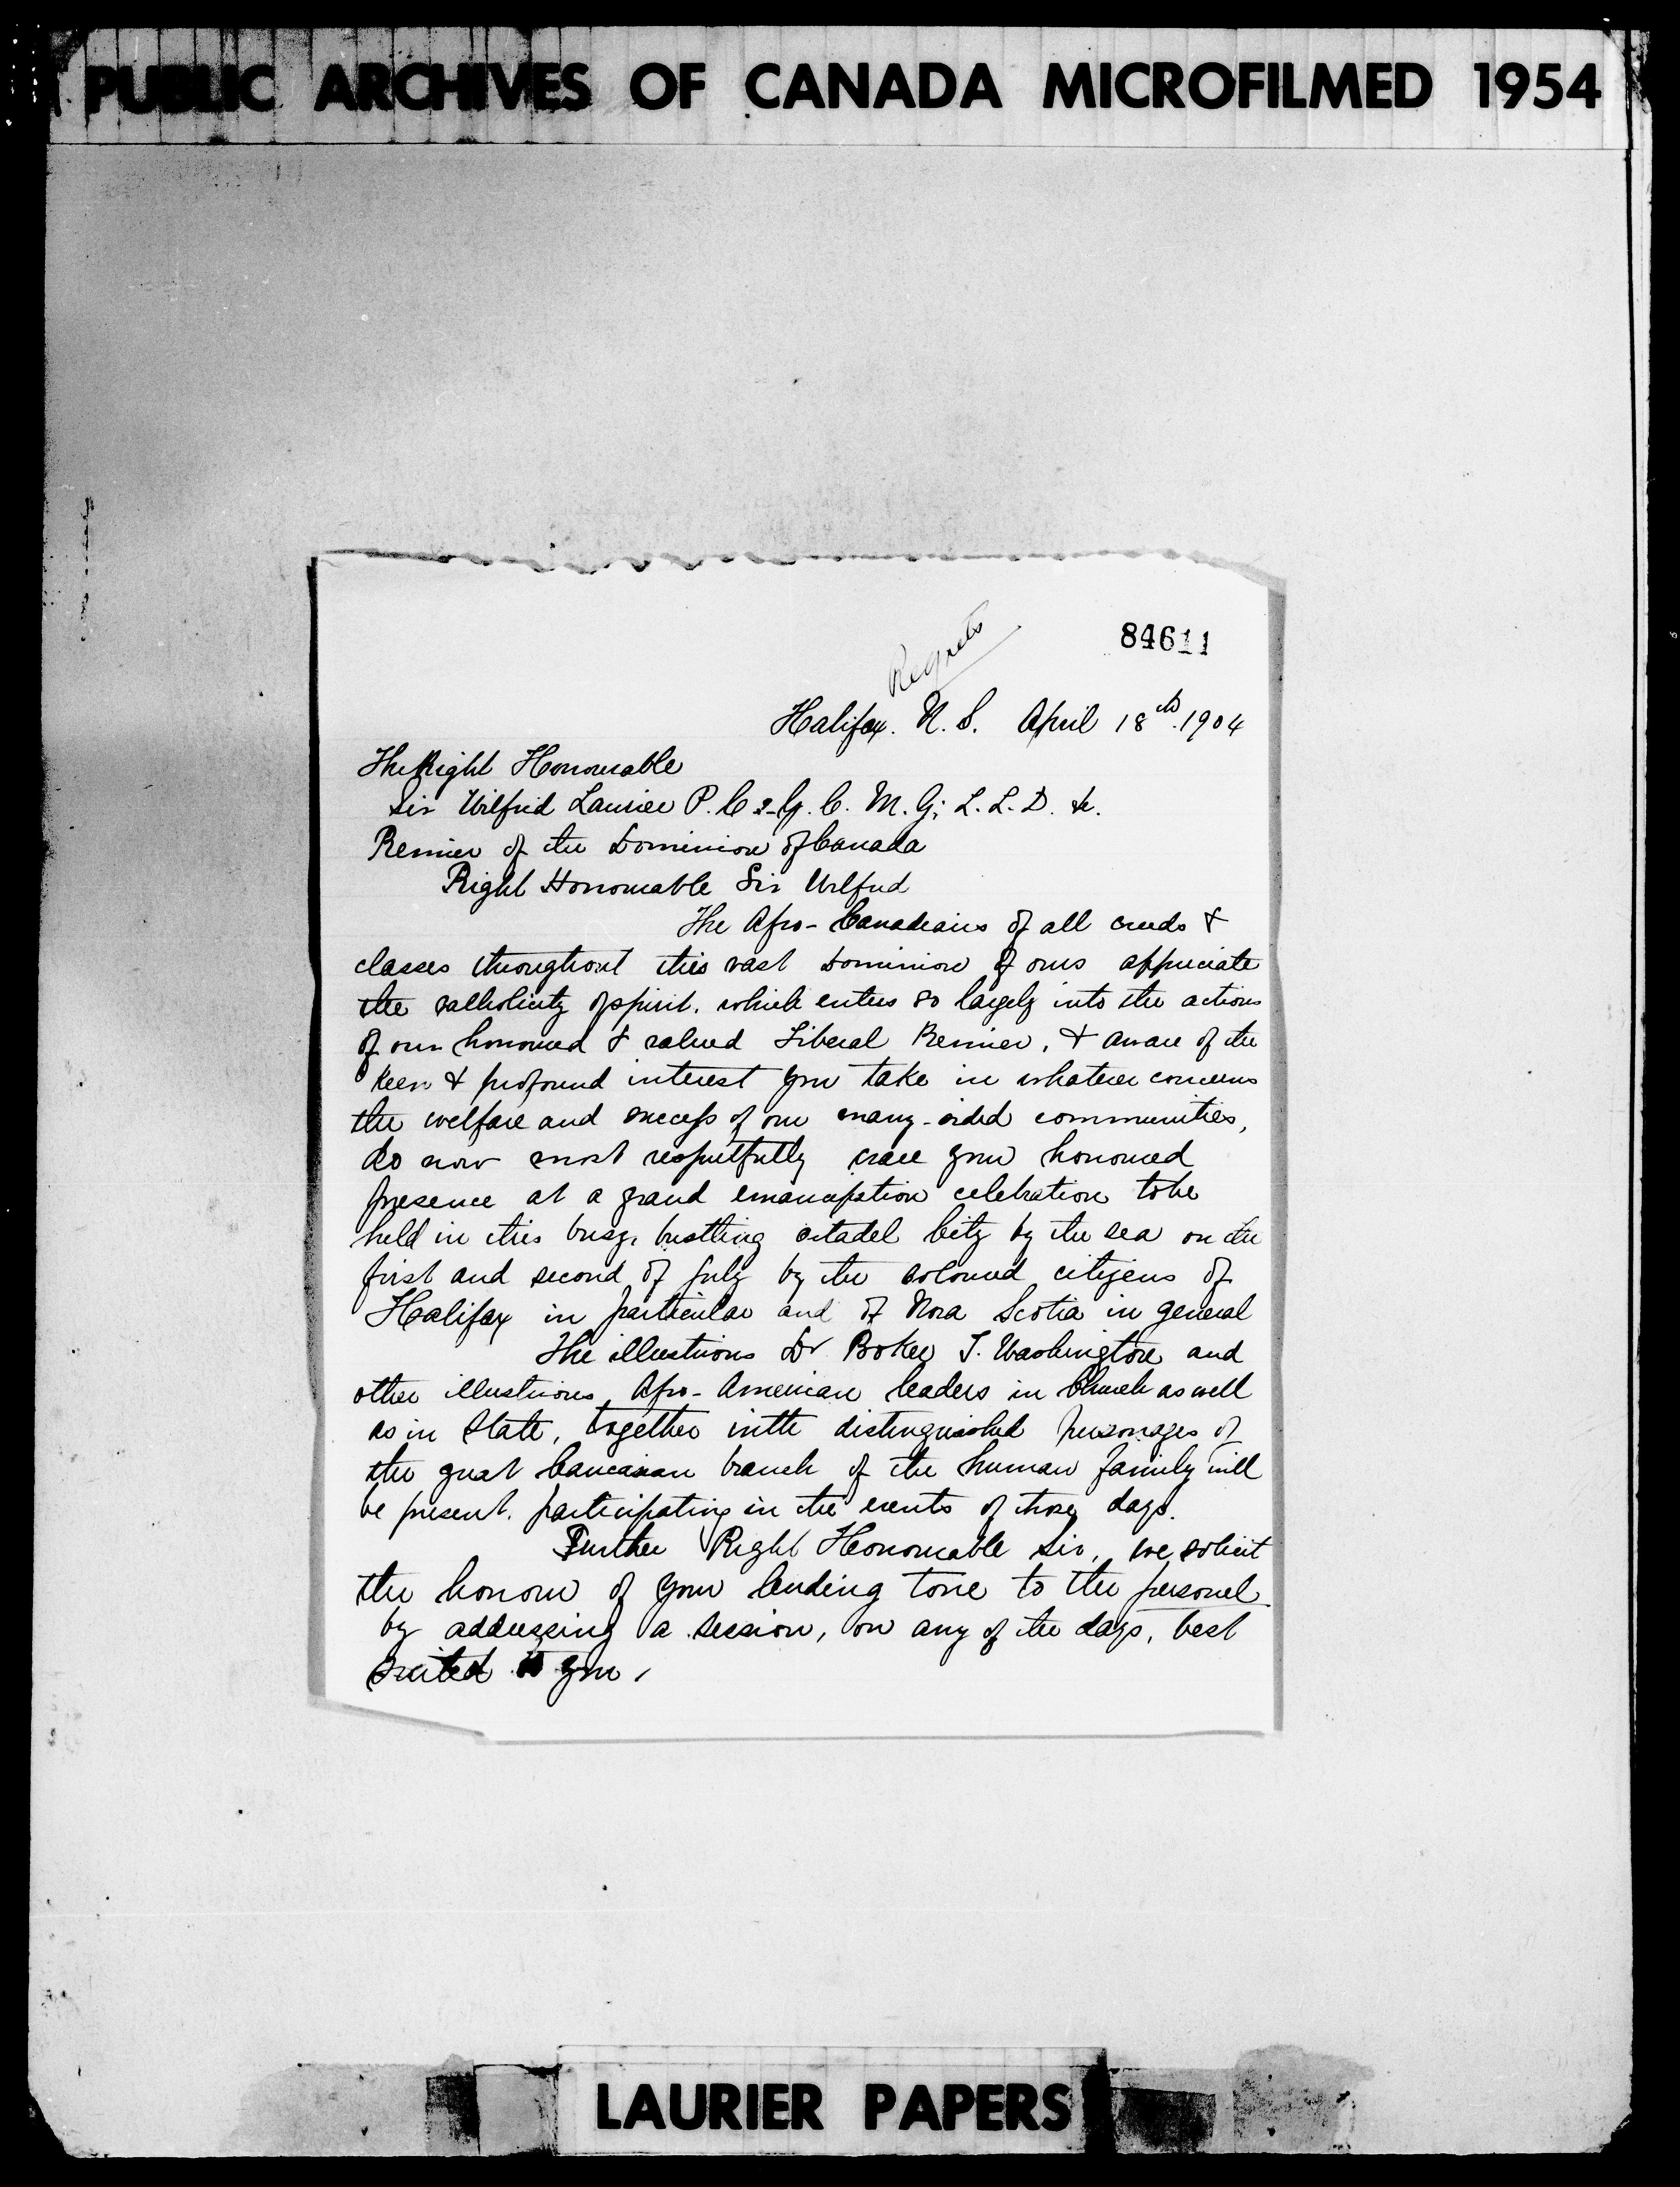 PUBLIC ARCHIVES OF CANADA MICROFILMED 1954
Regrets
84611
Halifax. N. S. April 18th. 1904
The Right Honourable
Sir Wilfrid Laurier P. C & G. C. M. G; L. L. D. &c.
Premier of the Dominion of Canada
Right Honourable Sir Wilfrid
The Afro-Canadians of all creeds &
classes throughout this vast Dominion of ours appreciate
the catholicity of spirit. which enters so largely into the actions
of our honoured & valued Liberal Premier, & aware of the
keen & profound interest you take in whatever concerns
the welfare and success of our many-sided communities,
do now most respectfully crave your honoured
presence at a grand emancipation celebration to be
held in this busy, bustling citadel City by the sea on the
first and second of July by the coloured citizens of
Halifax in particular and of Nova Scotia in general
The illustrious Dr Booker T. Washington and
other illustrious Afro-American leaders in Church as well
as in State, together with distinguished personages of
the great Caucasian branch of the human family will
be present. participating in the events of those days.
Further Right Honourable Sir, we solicit
the honour of your lending tone to the personel
by addressing a session, on any of the days, best
suited to you,
LAURIER PAPERS